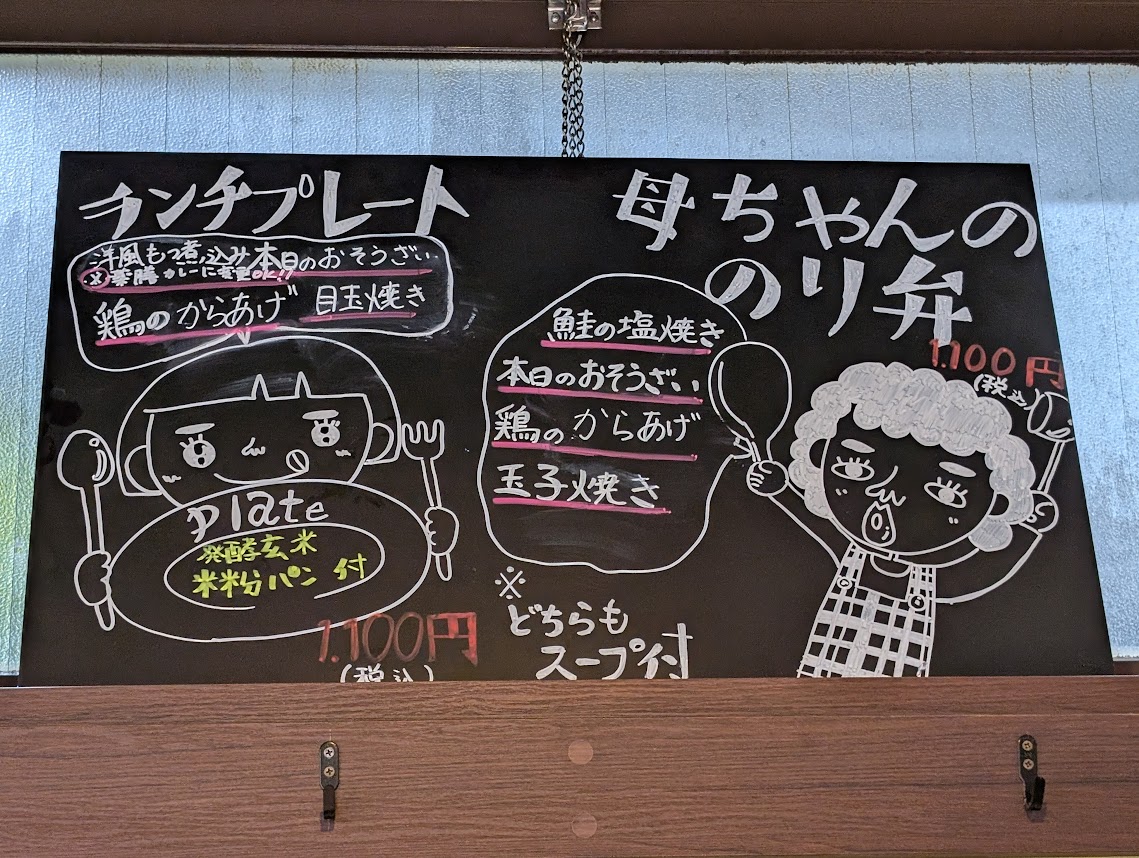 ランチプレート
洋風もつ煮込み 本日のおそうざい
※薬膳カレーに変更OK!!
鶏のからあげ 目玉焼き
plate
発酵玄米
米粉パン 付
1.100円
(税込)
母ちゃんの
のり弁
1.100円
(税込)
鮭の塩焼き
本日のおそうざい
鶏のからあげ
玉子焼き
※
どちらも
スープ付